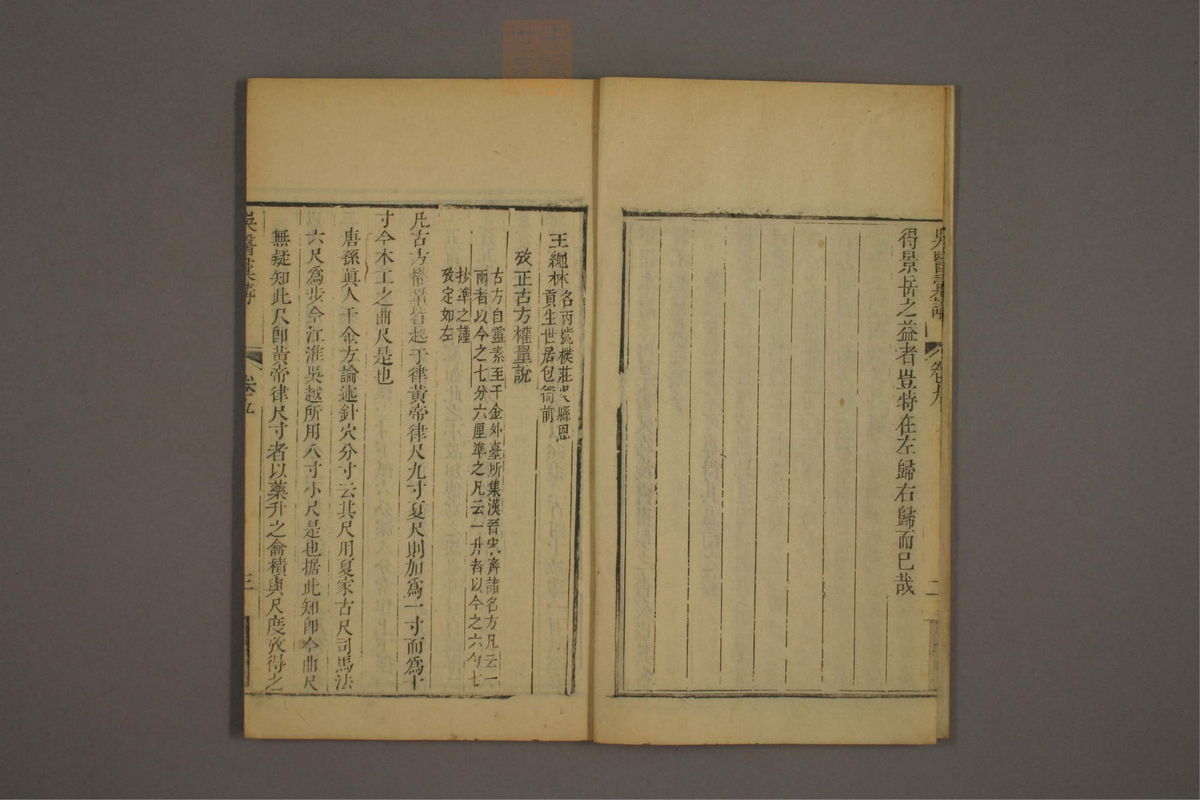 吳醫彙講 卷九 二
得景岳之益者豈特在左歸右歸而已哉
王繩林
名丙號樸莊吳縣恩
貢生世居包衙前
攷正古方權量說
古方自靈素至千金外臺所集漢晉宋齊諸名方凡云一
兩者以今之七分六厘準之凡云一升者以今之六勺七
抄準之謹
攷定如左
凡古方權量皆起于律黃帝律尺九寸夏尺則加爲一寸而爲十
寸今木工之曲尺是也
唐孫眞人千金方論述針穴分寸云其尺用夏家古尺司馬法
六尺爲步今江淮吳越所用八寸小尺是也据此知即今曲尺
無疑知此尺即黃帝律尺寸者以藥升之龠積與尺度攷得之
吳醫彙講 卷九 三